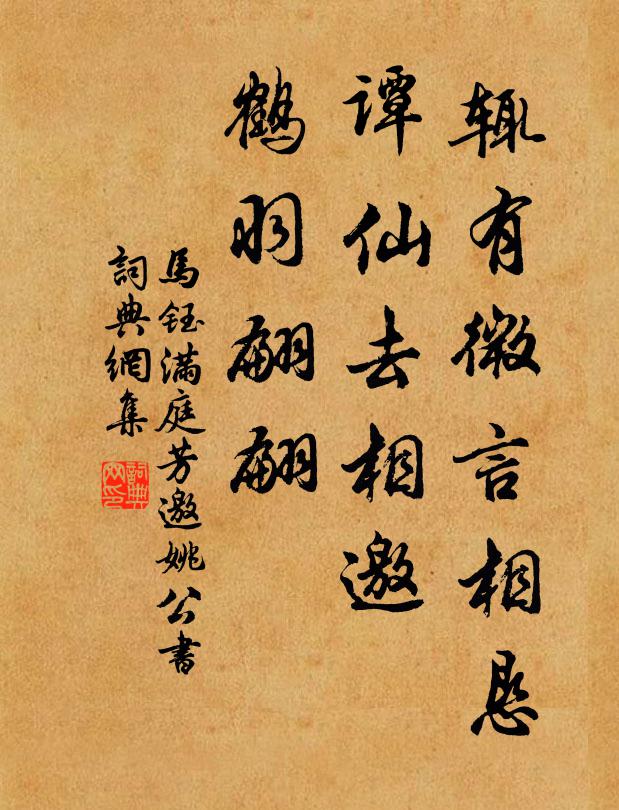 輙有微言相恳
譚仙去相邀
鶴羽翩翩
馬鈺滿庭芳邀姚公書
詞典網集
詞典网印